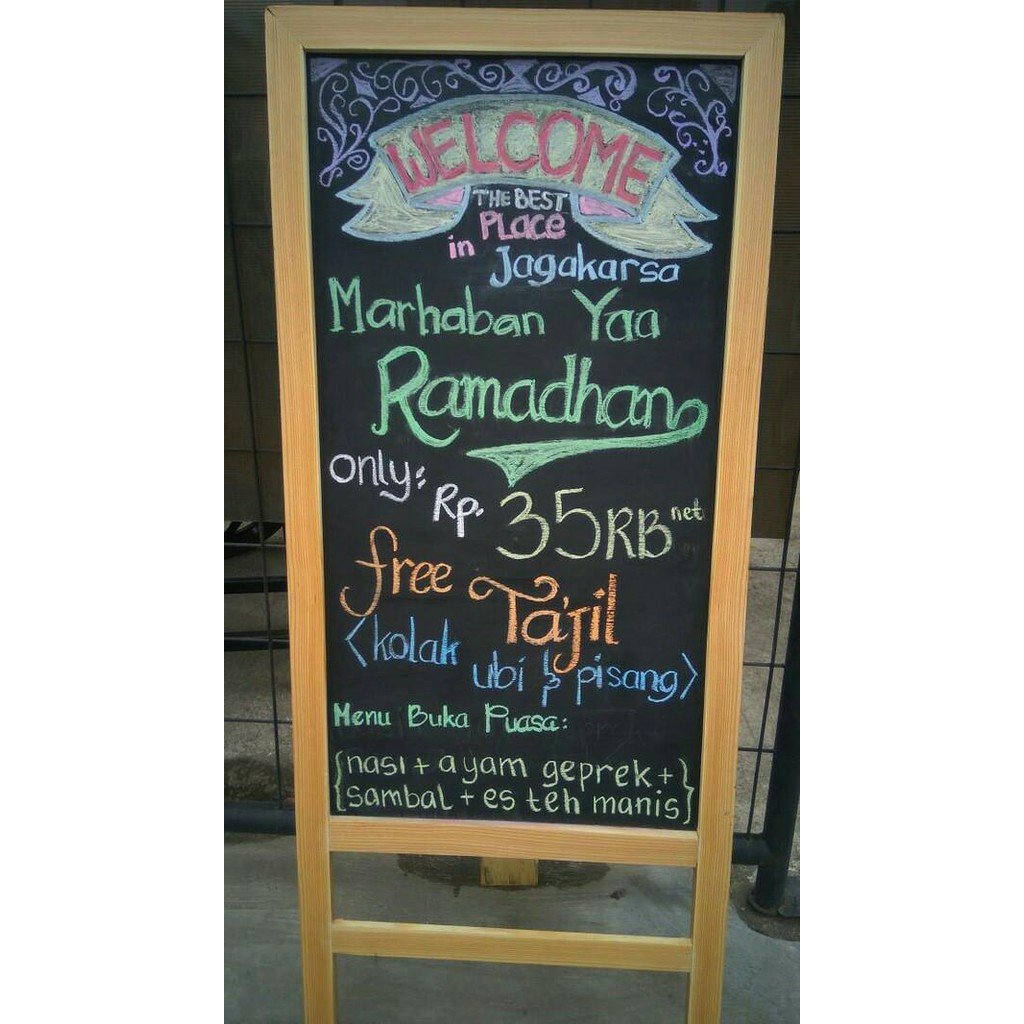 WELCOME
THE BEST
PLace
in Jagakarsa
Marhaban Yaa
Ramadhan
only: Rp. 35RB net
free Ta'jil
<kolak
ubi & pisang>
Menu Buka Puasa:
{nasi + ayam geprek +}
{sambal + es teh manis}